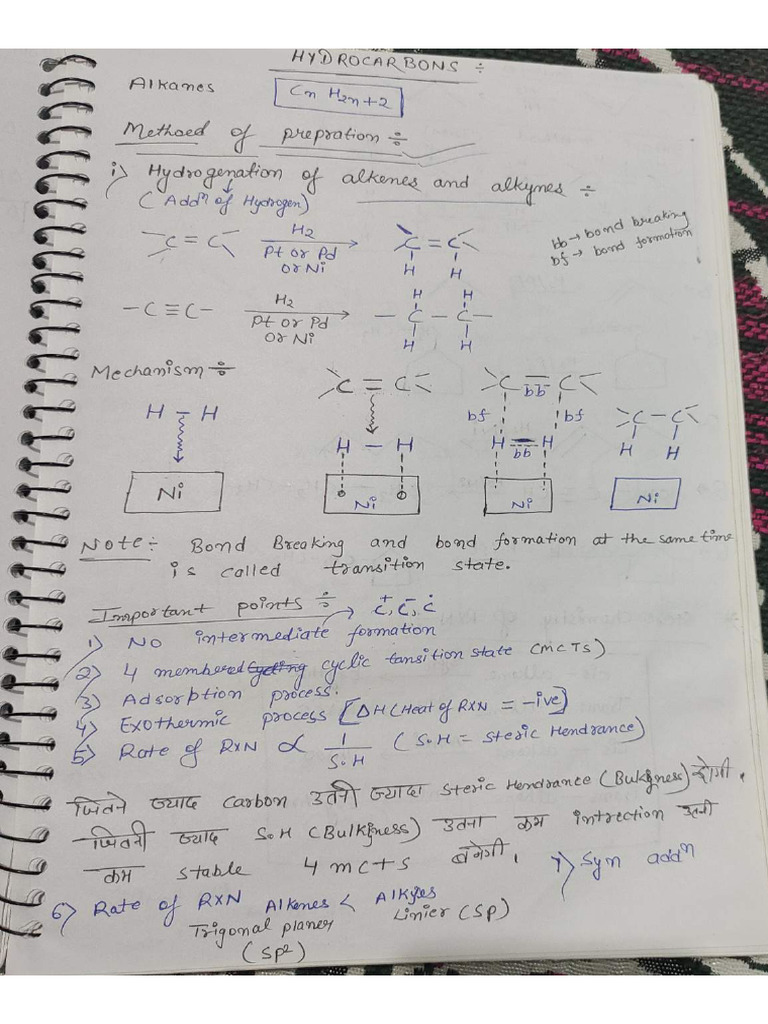 HYDROCARBONS ÷
Alkanes CnH2n+2
Methoed of prepration ÷
i) Hydrogenation of alkenes and alkynes ÷
(Addn of Hydrogen)
bb → bond breaking
bf → bond formation
>C=C< H2 Pt or Pd or Ni → C=C H H
-C≡C- H2 Pt or Pd or Ni → H H -C-C- H H
Mechanism ÷
H-H Ni
>C=C< H-H Ni
>C=C< bb bf bf H=H bb Ni
>C-C< H H Ni
Note ÷ Bond Breaking and bond formation at the same time
is called transition state.
Important points ÷ → C+, C-, Ċ
1) No intermediate formation
2) 4 membered cyclic tansition state (MCTs)
3) Adsorption process.
4) Exothermic process [ΔH (Heat of RXN = -ive]
5) Rate of RXN ∝ 1/S.H (S.H = Steric Hendrance)
जितने ज्याद carbon उतनी ज्यादा steric Hendrance (Bulkyness) होगी,
जितनी ज्याद S.H (Bulkyness) उतना कम intrection उतनी
कम stable 4 mcts बनेगी,
7) Syn addn
6) Rate of RXN Alkenes < Alkyles
Trigonal planer Linier (SP)
(SP2)